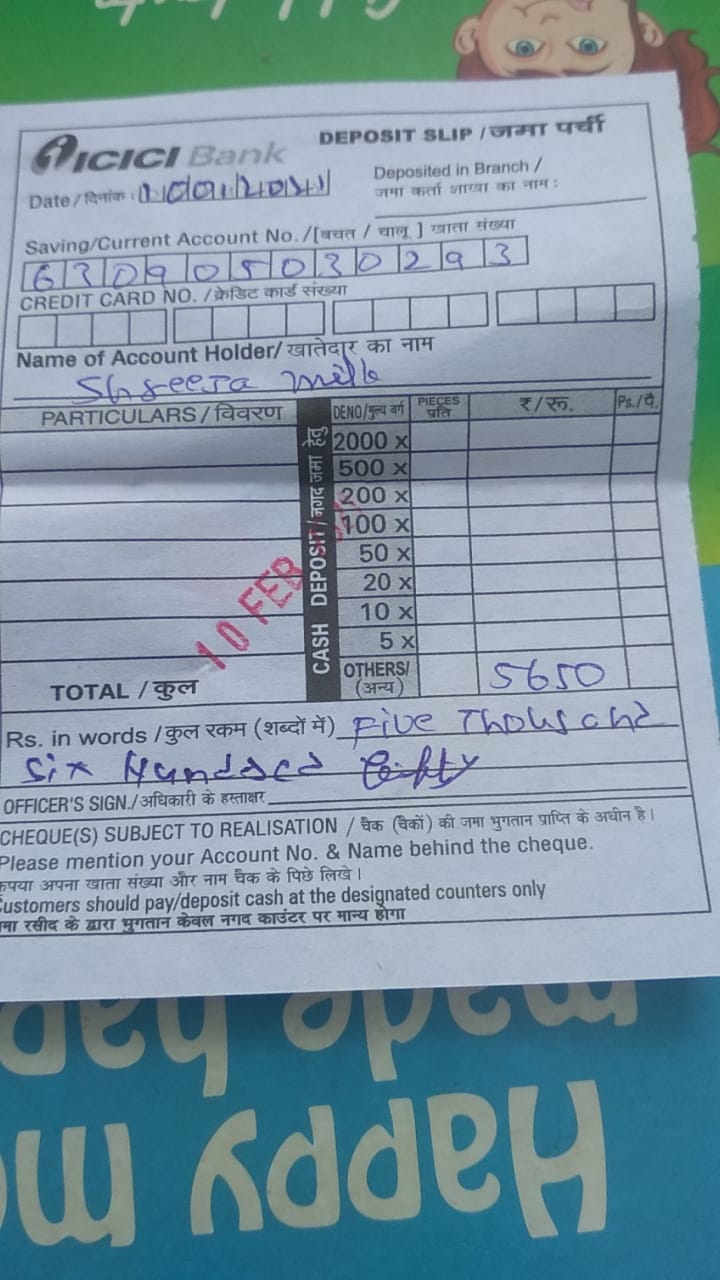 ICICI Bank
DEPOSIT SLIP / जमा पर्ची
Date / दिनांक :
Deposited in Branch /
जमा कर्ता शाखा का नाम :
Saving/Current Account No. /[बचत / चालू ] खाता संख्या
630905030293
CREDIT CARD NO. /क्रेडिट कार्ड संख्या
Name of Account Holder/ खातेदार का नाम
Shreeja milk
PARTICULARS / विवरण
CASH DEPOSIT/नगद जमा हेतु
DENO/मुल्य वर्ग PIECES प्रति ₹/रू. Ps./पै.
2000 x
500 x
200 x
100 x
50 x
20 x
10 x
5 x
10 FEB
TOTAL / कुल OTHERS/ (अन्य) 5650
Rs. in words /कुल रकम (शब्दों में) Five Thousand
Six Hundred Fifty
OFFICER'S SIGN./अधिकारी के हस्ताक्षर
CHEQUE(S) SUBJECT TO REALISATION / चैक (चैकों) की जमा भुगतान प्राप्ति के अधीन है।
Please mention your Account No. & Name behind the cheque.
कृपया अपना खाता संख्या और नाम चैक के पिछे लिखे।
Customers should pay/deposit cash at the designated counters only
जमा रसीद के द्वारा भुगतान केवल नगद काउंटर पर मान्य होगा
made hap
Happy m